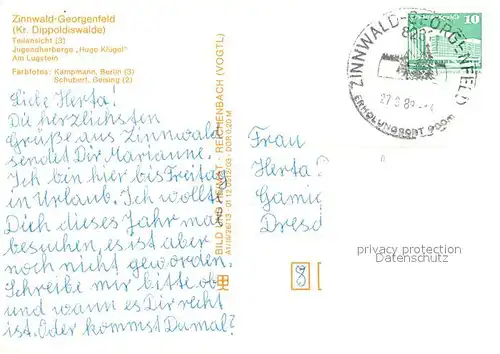 Zinnwald-Georgenfeld
(Kr. Dippoldiswalde)
Teilansicht (3)
Jugendherberge „Hugo Klügel"
Am Lugstein
Farbfotos: Kampmann, Berlin (3)
Schubert, Geising (2)
Liebe Herta!
Die herzlichsten
Grüße aus Zinnwald
sendet Dir Marianne.
Ich bin hier bis Freitag
in Urlaub. Ich wollt
Dich dieses Jahr mal
besuchen, es ist aber
noch nicht geworden.
Schreibe mir bitte ob
und wann es Dir recht
ist. Oder kommst Du mal?
BILD UND HEIMAT · REICHENBACH (VOGTL)
DDR 0,20 M
ZINNWALD-GEORGENFELD
ERHOLUNGSORT 900m
10
Frau
Herta
Dresd
privacy protection
Datenschutz
8